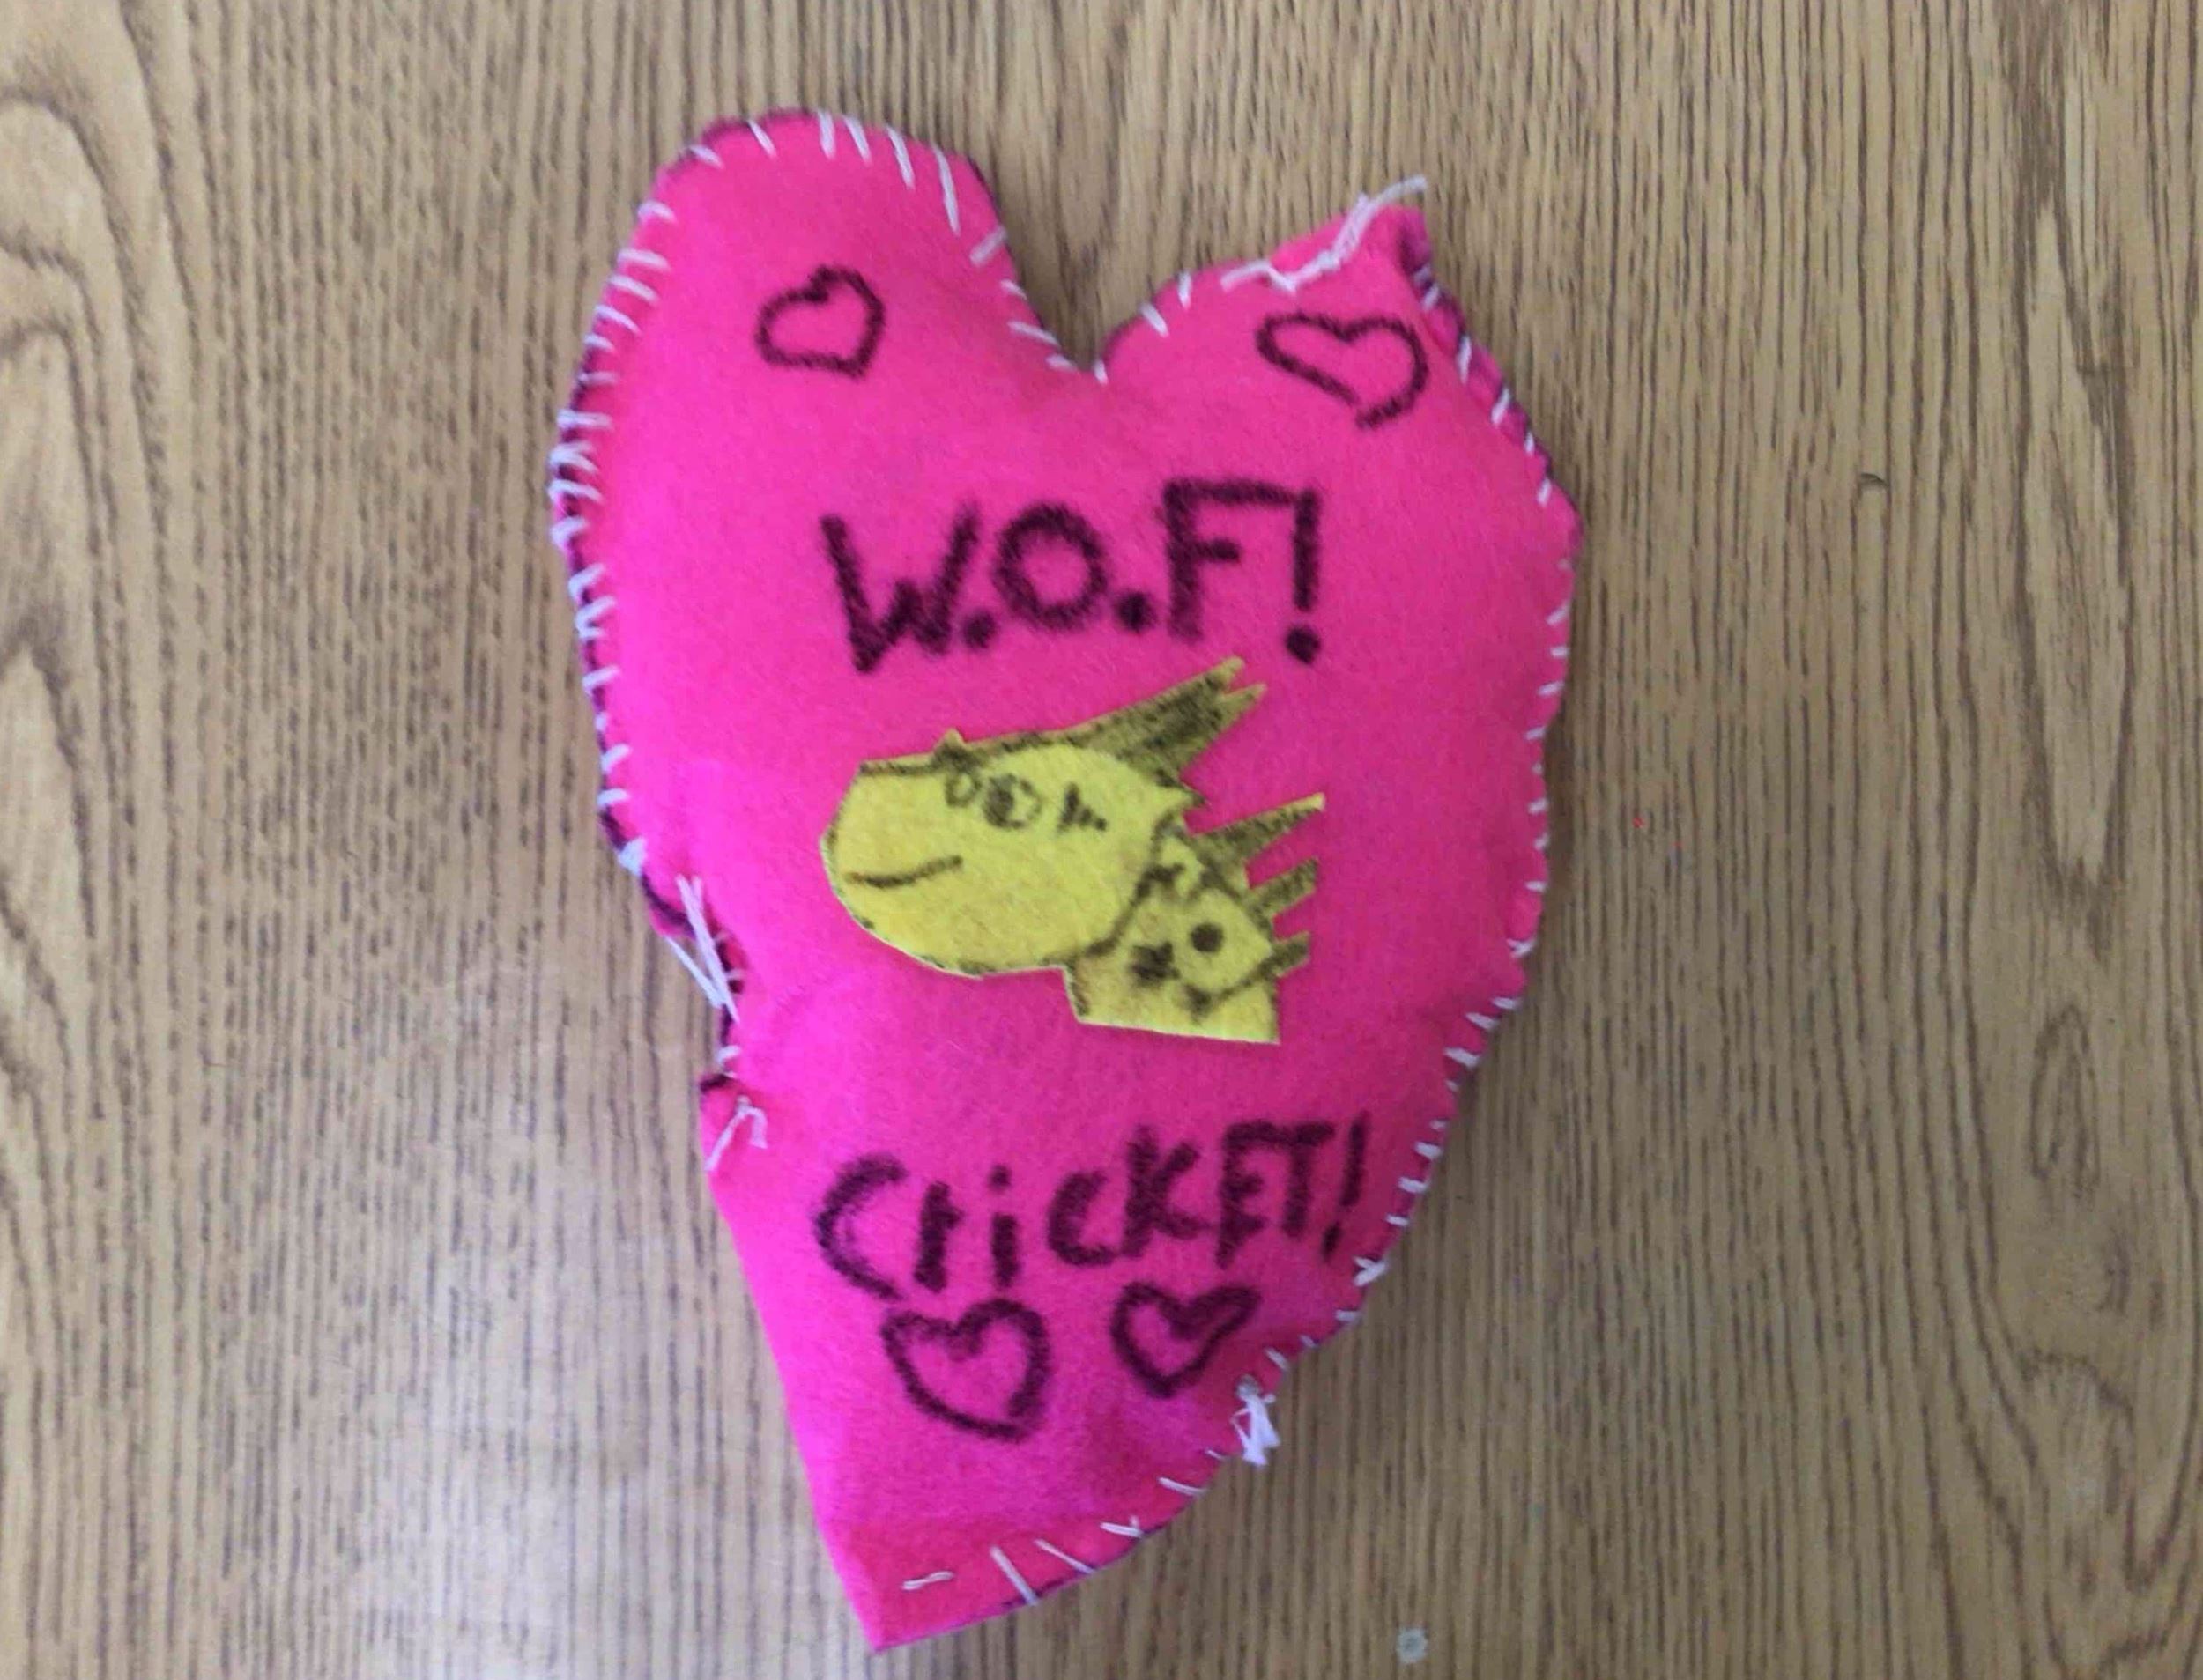 W.O.F!
CricKET!